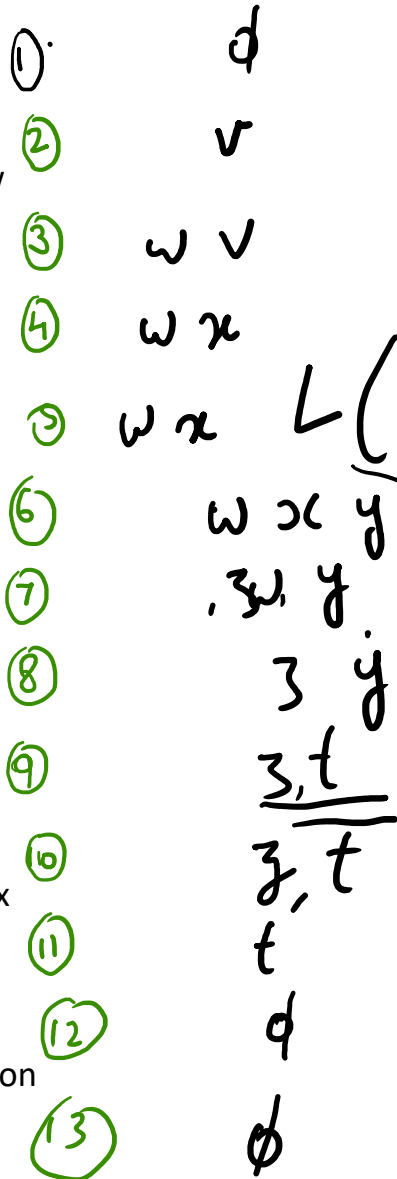 ① φ
② v
y
③ w v
④ w x
⑤ w x L (
⑥ w x y
⑦ , z w, y
⑧ z y
⑨ z, t
⑩ z, t
x
⑪ t
⑫ φ
on
⑬ φ